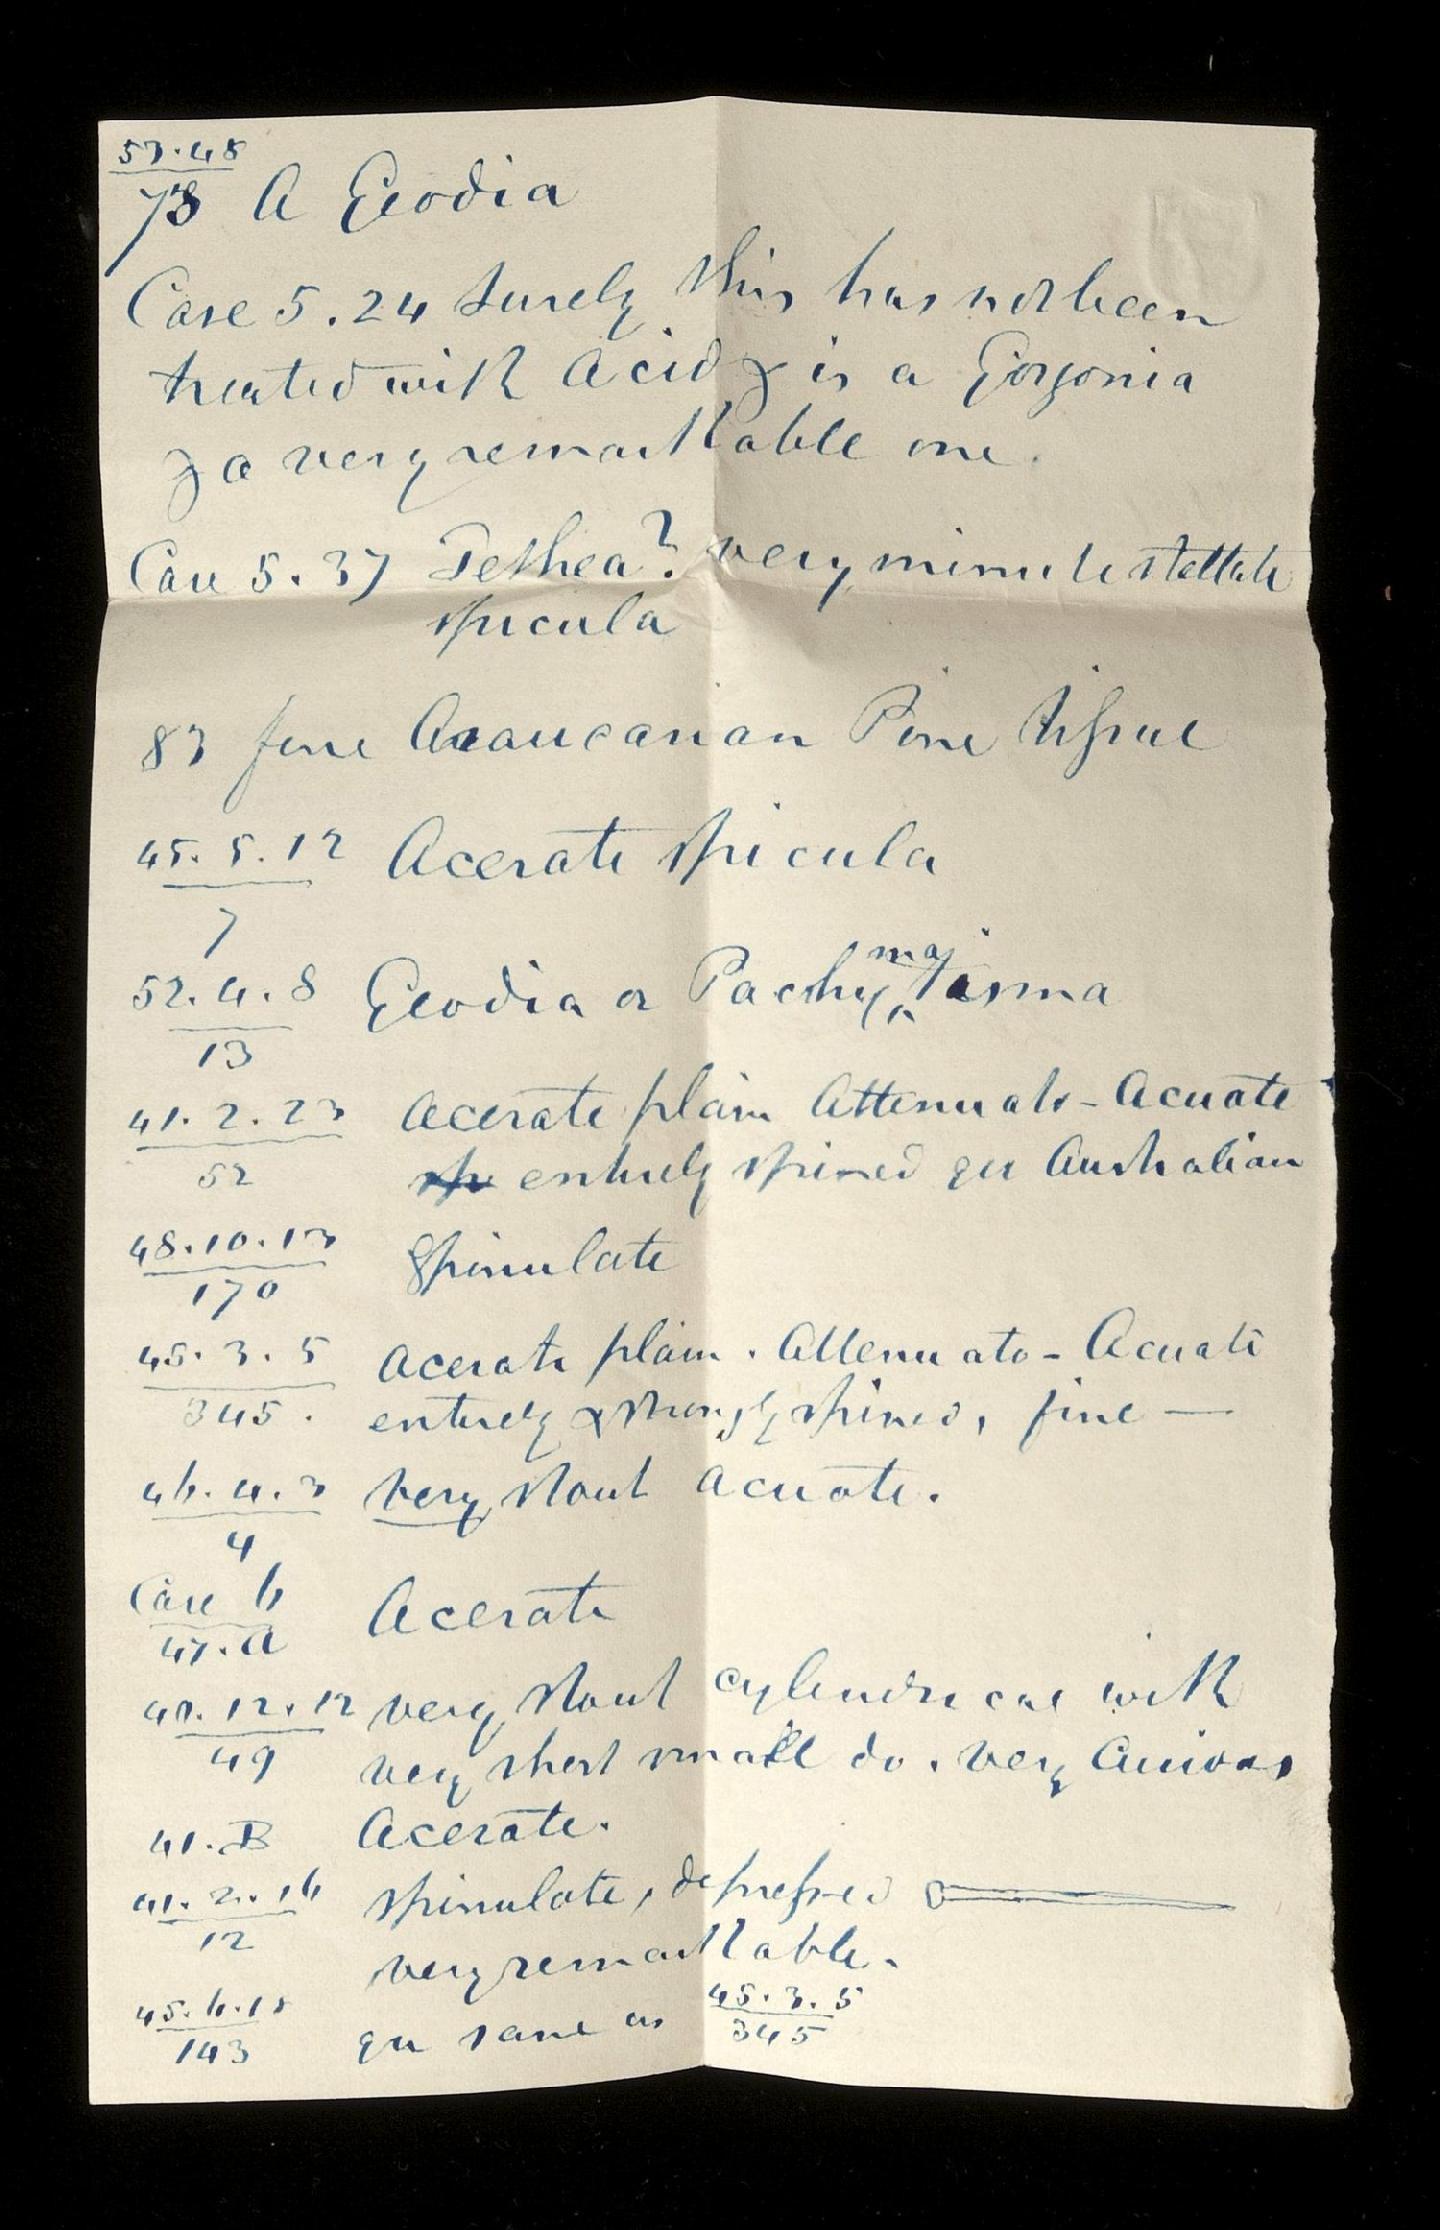 53.48
78 A Geodia
Case 5.24 Surely this has not been
treated with Acid & is a Gorgonia
& a very remarkable one.
Case 5.37 Tethea? very minute stellate
spicula
83 fine Araucarian Pine tissue
45.5.12 Acerate spicula
7
52.4.8 Geodia or Pachymatisma
13
41.2.23 Acerate plain Attenuato-Acuate
52 entirely spined qu Australian
48.10.13 Spinulate
170
45.3.5 Acerate plain. Attenuato-Acuate
345. entirely & strongly spined, fine —
46.4.3 Very stout Acuate.
4
Case 6 Acerate
47.A
12.12 very stout cylindrical with
49 very short small do. very Curious
41.B Acerate.
41.2.16 spinulate, depressed
12 very remarkable.
45.6.18 qu same as 45.3.5
143 345